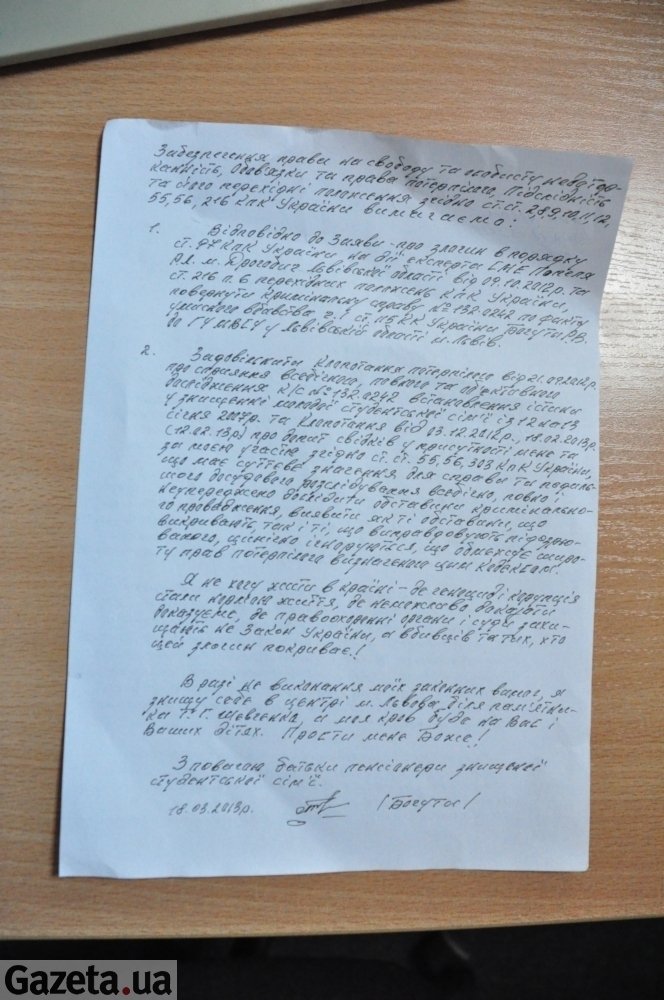 Забезпечення права на свободу та особисту недоторканність, Обов'язки та права потерпілого, Підслідність
та його перехідні положення згідно ст.ст. 2,8,9,10,11,12,
55,56, 216 КПК України вимагаємо:
1. Відповідно до Заяви про злочин в порядку
ст. 97 КПК України на дії експерта СМЕ
м. Дрогобич Львівської області від 09.10.2012р. та
ст. 216 п. 6 перехідних положень КПК України,
повернути кримінальну справу № 132-0242 по факту
умисного вбивства ч. 1 ст. 115 КК України Богути Р.В.
до ГУМВСУ у Львівській області м. Львів.
2. Задовільнити Клопотання потерпілого від 21.09.2012р.
про сприяння всебічного, повного та об'єктивного
дослідження к/с № 132-0242 встановлення істини
у знищенні молодої студентської сім'ї із 12 на 13
січня 2007р. та Клопотання від 03.12.2012р., 18.02.2013р.
(12.02.13р) про допит свідків у присутності мене та
за моєю участю згідно ст. ст. 55, 56, 303 КПК України,
що має суттєве значення для справи та подаль-
шого досудового розслідування всебічно, повно і
неупереджено дослідити обставини кримінально-
го провадження, виявити як ті обставини, що
викривають так і ті, що виправдовують підозрю-
ваного, цинічно ігноруються, що обмежує широ-
ту прав потерпілого визначених цим Кодексом.
Я не хочу жити в країні - де геноцид і корупція
стали нормою життя, де неможливо доказати
доказуєме, де правоохоронні органи і суди захи-
щають не Закон України, а вбивців та тих, хто
цей злочин покриває!
В разі не виконання моїх законних вимог, я
знищу себе в центрі м. Львова біля пам'ятни-
ка Т. Г. Шевченка, а моя кров буде на Вас і
Ваших дітях. Прости мене Боже!
З повагою батьки пенсіонери знищеної
студентської сім'ї.
18.03.2013р. /Богути/
Gazeta.ua